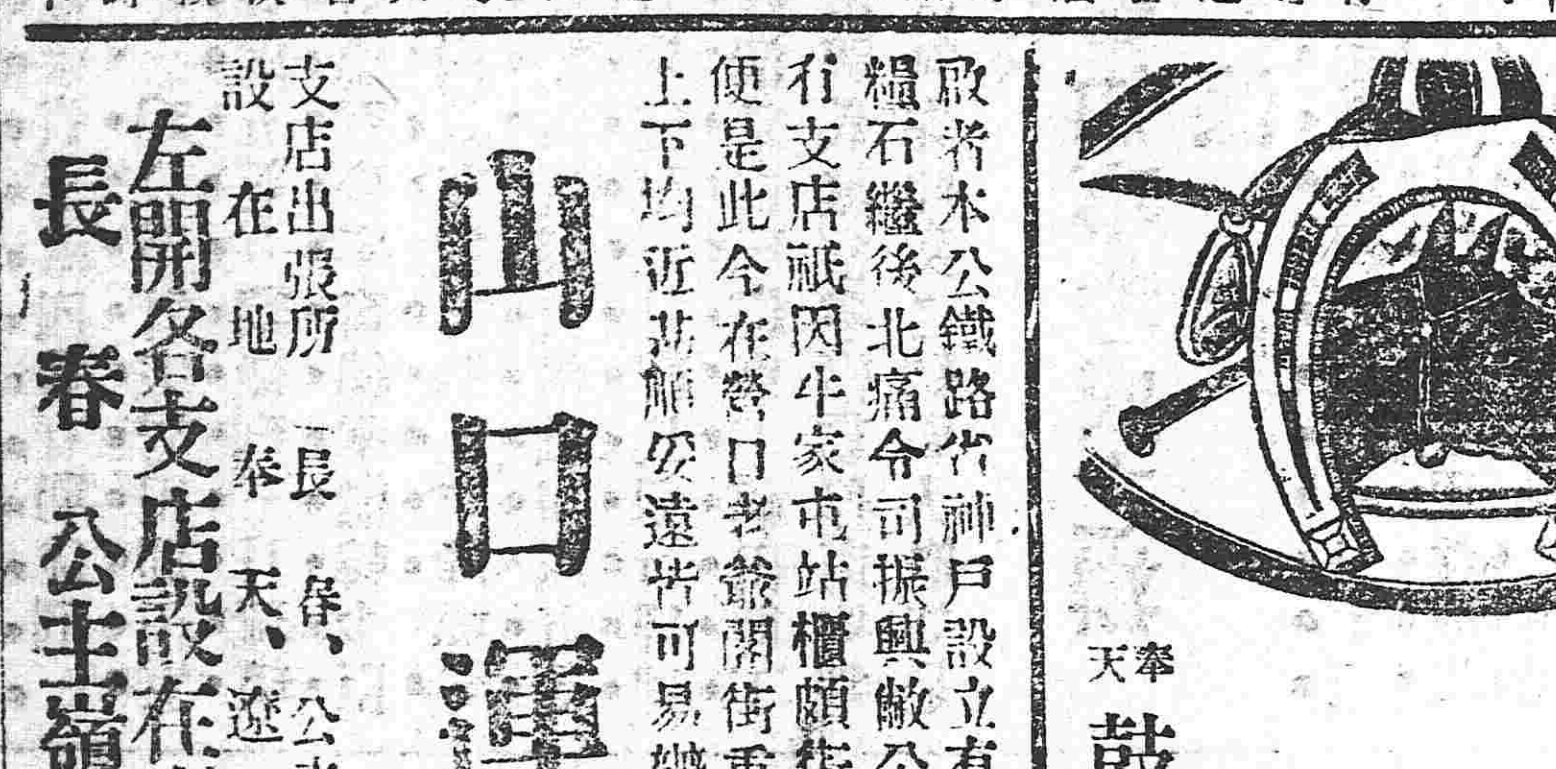 奉天
鼓
啟者本公鐵路省神戶設立有
糧石繼後北痛令司振興敝公
有支店祇因牛家屯站櫃頗
便是此今在營口老爺閣街
上下均近 妥遠皆可易
山口運
支店出張所 長春、公
設在地 奉天、遼
左開各支店設在
長春 公主嶺